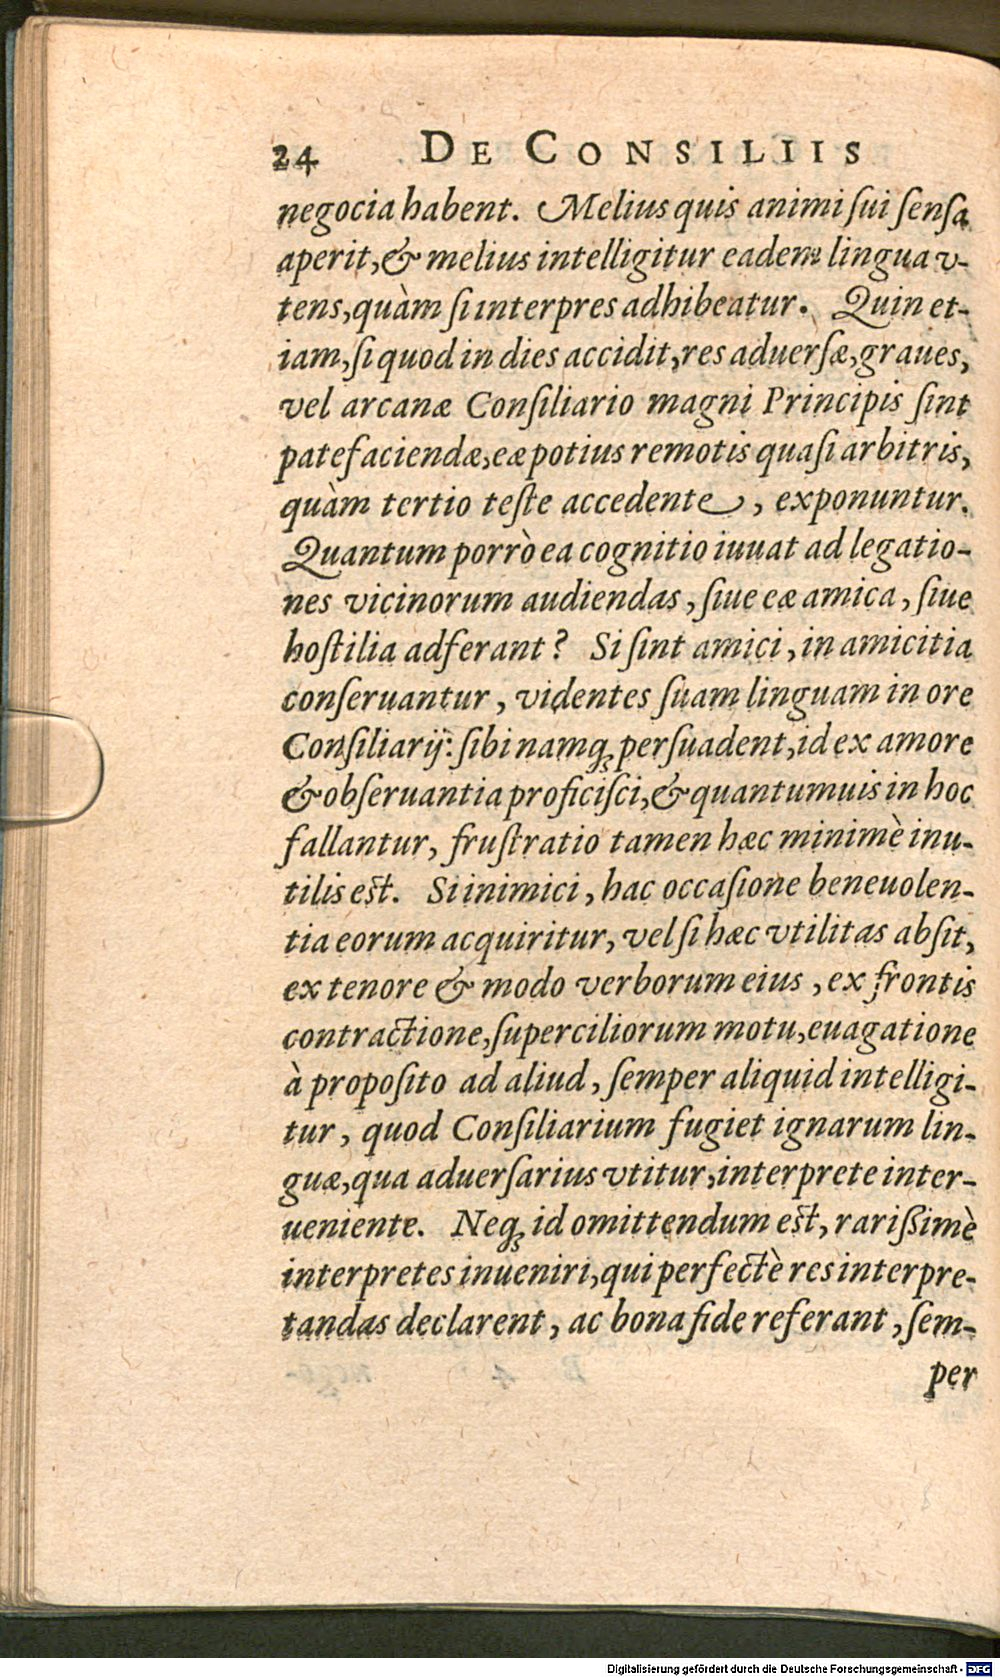 24 DE CONSILIIS
negocia habent. Melius quis animi ſui ſenſa
aperit, & melius intelligitur eadem lingua v-
tens, quàm ſi interpres adhibeatur. Quin et-
iam, ſi quod in dies accidit, res aduerſæ, graues,
vel arcanæ Conſiliario magni Principis ſint
patefaciendæ, eæ potius remotis quaſi arbitris,
quàm tertio teſte accedente, exponuntur.
Quantum porrò ea cognitio iuuat ad legatio-
nes vicinorum audiendas, ſiue eæ amica, ſiue
hoſtilia adferant? Si ſint amici, in amicitia
conſeruantur, videntes ſuam linguam in ore
Conſiliarij: ſibi namq; perſuadent, id ex amore
& obſeruantia proficiſci, & quantumuis in hoc
fallantur, fruſtratio tamen hæc minimè inu-
tilis eſt. Si inimici, hac occaſione beneuolen-
tia eorum acquiritur, vel ſi hæc vtilitas abſit,
ex tenore & modo verborum eius, ex frontis
contractione, ſuperciliorum motu, euagatione
à propoſito ad aliud, ſemper aliquid intelligi-
tur, quod Conſiliarium fugiet ignarum lin-
guæ, qua aduerſarius vtitur, interprete inter-
ueniente. Neq; id omittendum eſt, rariſſimè
interpretes inueniri, qui perfectè res interpre-
tandas declarent, ac bona fide referant, ſem-
per
Digitalisierung gefördert durch die Deutsche Forschungsgemeinschaft - DFG